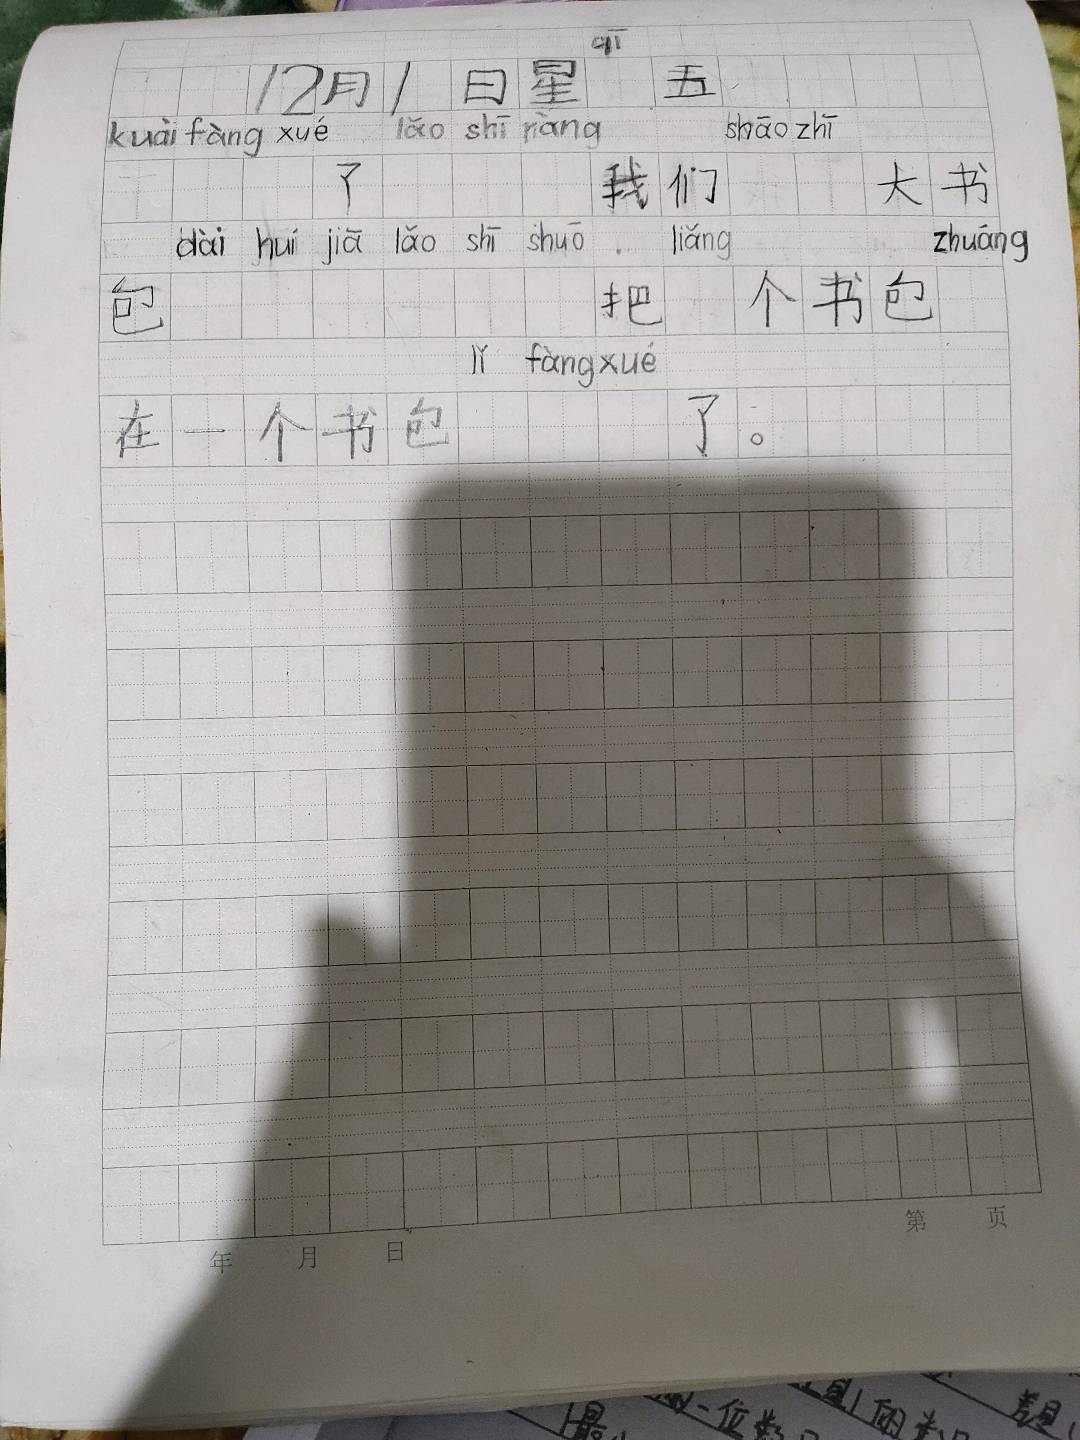 qī
12月1日星 五
kuài fàng xué lǎo shī ràng shāo zhī
了 我们 大书
dài huí jiā lǎo shī shuō liǎng zhuāng
包 把 个书包
lǐ fàng xué
在一个书包 了。
年 月 日 第 页